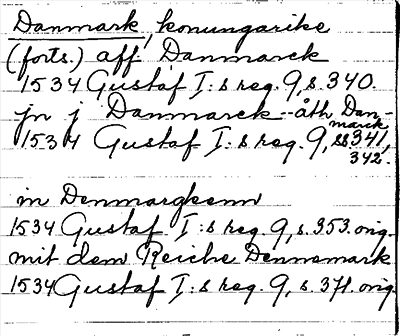 Danmark, konungarike
(forts.) aff Danmarck
1534 Gustaf I:s reg. 9, s. 340.
jn j Danmarck - åth Dan-
marck
1534 Gustaf I:s reg. 9, ss 341,
342.
in Denmargkenn
1534 Gustaf I:s reg. 9, s. 353. orig.
mit dem Reiche Dennemark
1534 Gustaf I:s reg. 9, s. 371. orig.